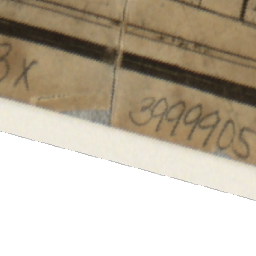 3x 3999905